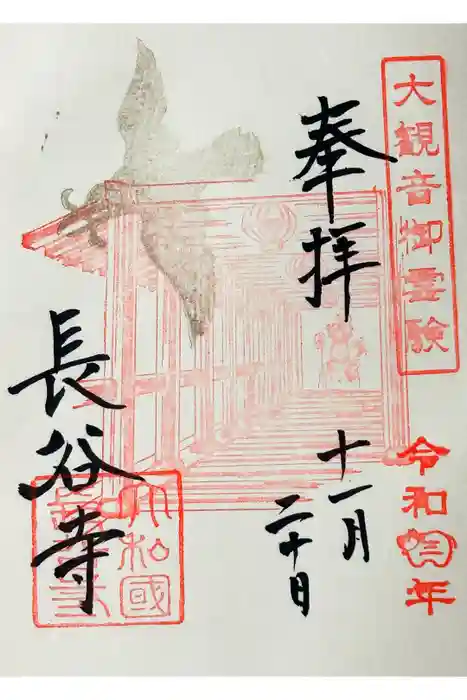 大観音御霊験
奉拝
令和年
十一月
二十日
長谷寺
大和國